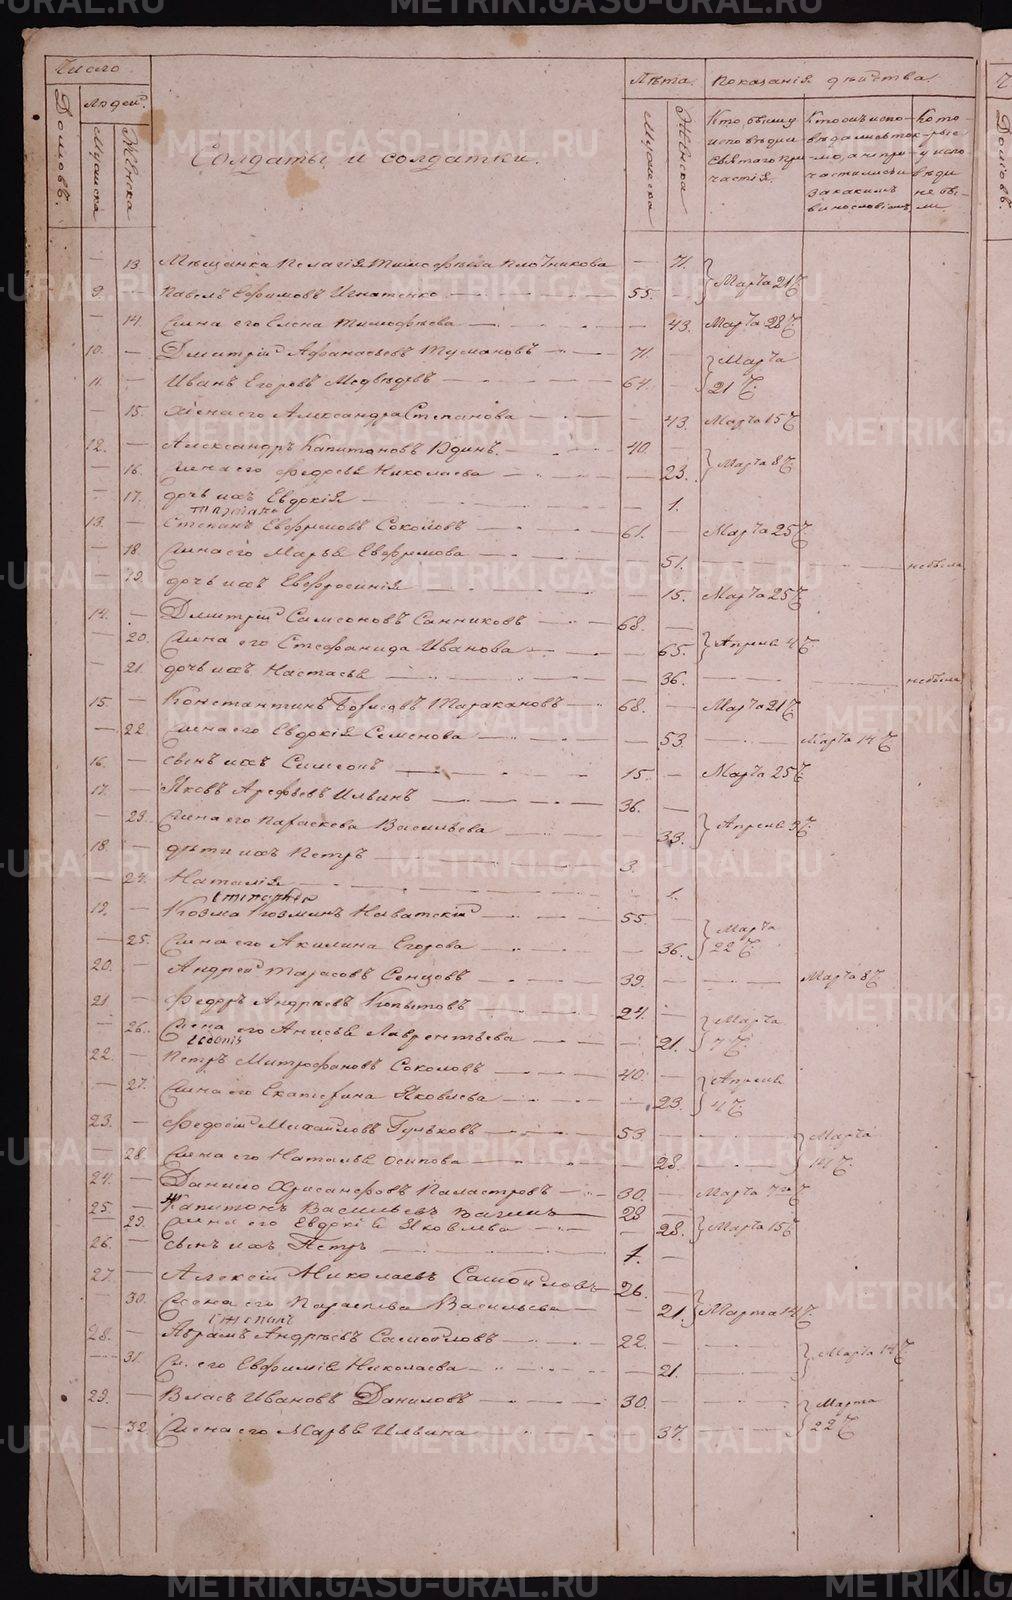 Число
Домовъ.
Людей.
Мужеска
Женска
Солдаты и солдатки.
Лѣта.
Мужеска
Женска
Показанія дѣйства
Кто были у исповѣди и святаго причастія.
Кто исповѣдались токмо, а не причастились и за какимъ винословіемъ.
Которые у исповѣди не были.
— 13. Мѣщанка Пелагія Тимофѣева Плотникова — 71. Марта 21
9. — Павелъ Ефимовъ Игнатенко 55. —
— 14. Жена его Елена Тимофѣева — 43. Марта 28
10. — Дмитрій Афанасьевъ Тумановъ 71. — Марта
11. — Иванъ Егоровъ Медвѣдевъ 64. — 21
— 15. Жена его Александра Степанова — 43. Марта 15
12. — Александръ Капитоновъ Юдинъ. 40. — Марта 8
— 16. Жена его Николаева — 23.
— 17. дочь ихъ Евдокія — 1.
13. — Степанъ Соколовъ 61. — Марта 25
— 18. Жена его Марья Ефимова — 51. небыла
— 19. дочь ихъ Евфросинія — 15. Марта 25
14. — Дмитрій Самсоновъ Санниковъ 68. —
— 20. Жена его Стефанида Иванова — 65. Апреля 4
— 21. дочь ихъ Настасья — 36. небыла
15. — Константинъ Борисовъ Таракановъ 68. — Марта 21
— 22. Жена его Евдокія Семенова — 53. Марта 14
16. — сынъ ихъ Симеонъ 15. — Марта 25
17. — Яковъ Арефьевъ Ильинъ 36. —
— 23. Жена его Параскева Васильева — 33. Апреля 3
18. — дѣти ихъ Петръ 3.
— 24. Наталія 1.
19. — Козма Козминъ 55. Марта
— 25. Жена его Акилина Егорова — 36. 22
20. — Андрей Тарасовъ 39. — Марта 8
21 — Федоръ Андреевъ Копытовъ 24. — Марта
— 26. Жена его Анисья Лаврентьева — 21. 7
22. — Петръ Митрофановъ Соколовъ 40. — Апреля
— 27. Жена его Екатерина Яковлева — 23. 4
23. — Михайловъ Гульковъ 53. Марта
— 28. Жена его Наталья Осипова — 28. 14
24. — Данило Хрисанфовъ 30. — Марта 7
25. — Капитонъ Васильевъ 28 —
— 29. Жена его Евдокія Яковлева — 28. Марта 15
26. — сынъ ихъ Петръ 1. —
27. — Алексій Николаевъ Самойловъ 26. —
— 30. Жена его Параскева Васильева — 21. Марта 14
28. — Абрамъ Андреевъ Самойловъ 22. Марта 14
— 31. Ж. его Евфимія Николаева — 21.
29. — Власъ Ивановъ Даниловъ 30. Марта
— 32. Жена его Марья Ильина — 37. 22
METRIKI.GASO-URAL.RU